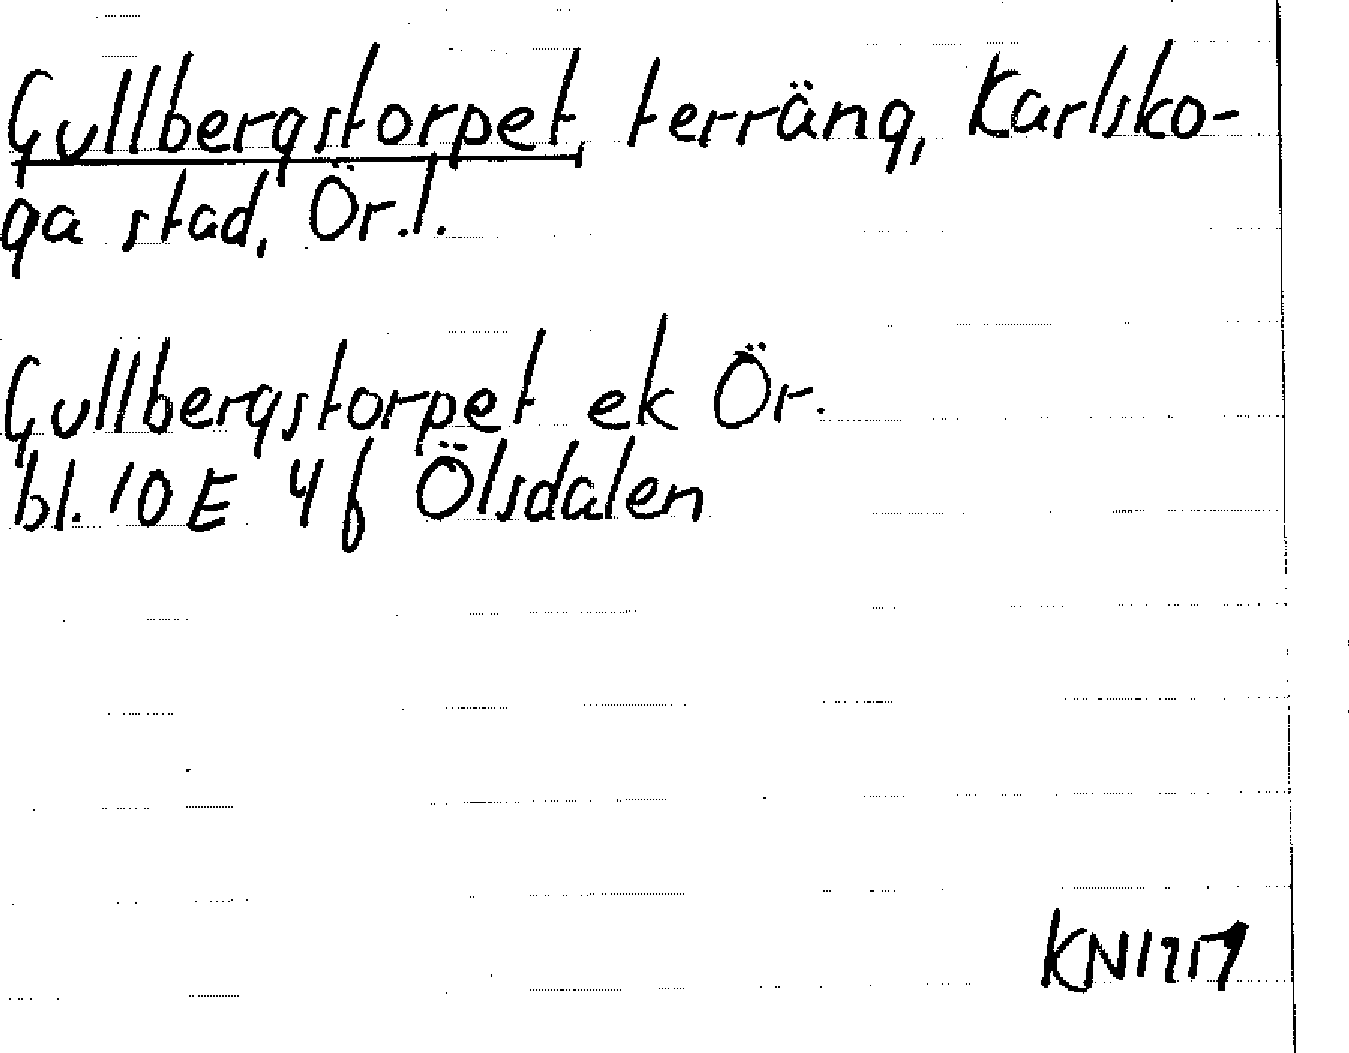 Gullbergstorpet, terräng, Karlsko-
ga stad, Ör.l.
Gullbergstorpet ek Ör.
bl. 10 E 4 f Ölsdalen